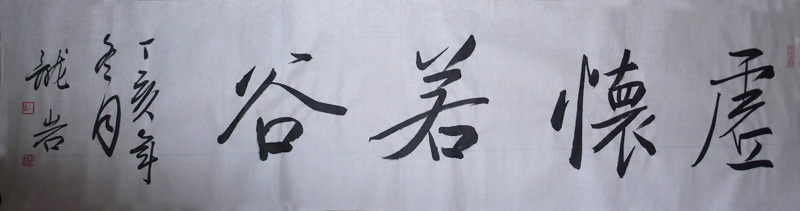 虛懷若谷
丁亥年
冬月
龍岩